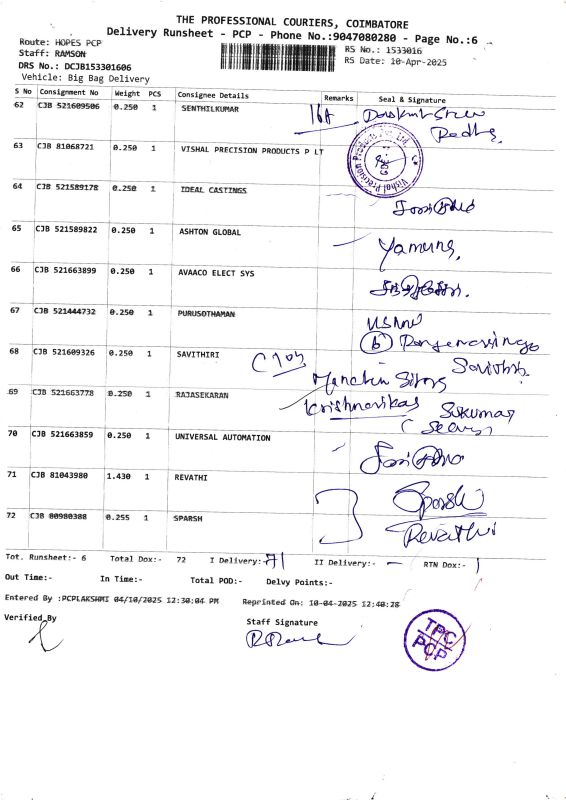 THE PROFESSIONAL COURIERS, COIMBATORE
Delivery Runsheet - PCP - Phone No.:9047080280 - Page No.:6
Route: HOPES PCP
RS No.: 1533016
Staff: RAMSON
RS Date: 10-Apr-2025
DRS No.: DCJB153301606
Vehicle: Big Bag Delivery
S No Consignment No Weight PCS Consignee Details Remarks Seal & Signature
62 CJB 521609506 0.250 1 SENTHILKUMAR
63 CJB 81068721 0.250 1 VISHAL PRECISION PRODUCTS P LT
64 CJB 521589178 0.250 1 IDEAL CASTINGS
65 CJB 521589822 0.250 1 ASHTON GLOBAL Yamuna,
66 CJB 521663899 0.250 1 AVAACO ELECT SYS
67 CJB 521444732 0.250 1 PURUSOTHAMAN
68 CJB 521609326 0.250 1 SAVITHIRI
69 CJB 521663778 0.250 1 RAJASEKARAN Sukumar
70 CJB 521663859 0.250 1 UNIVERSAL AUTOMATION
71 CJB 81043980 1.430 1 REVATHI
72 CJB 80980388 0.255 1 SPARSH Revathi
Tot. Runsheet:- 6 Total Dox:- 72 I Delivery:- 71 II Delivery:- — RTN Dox:- 1
Out Time:- In Time:- Total POD:- Delvy Points:-
Entered By :PCPLAKSHMI 04/10/2025 12:30:04 PM Reprinted On: 10-04-2025 12:40:28
Verified By Staff Signature
TPC
PCP